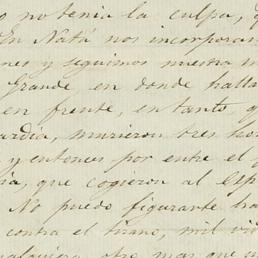 o no tenia la culpa,
En Natá nos incorpora
nes y seguimos nuestra
Grande, en donde halla
en frente, en tanto q
ardia, murieron tres ho
y entonces por entre el
ia, que cogieron al Esp
No puedo figurarte ha
contra el tirano, mil vi
alquiera otro mas que